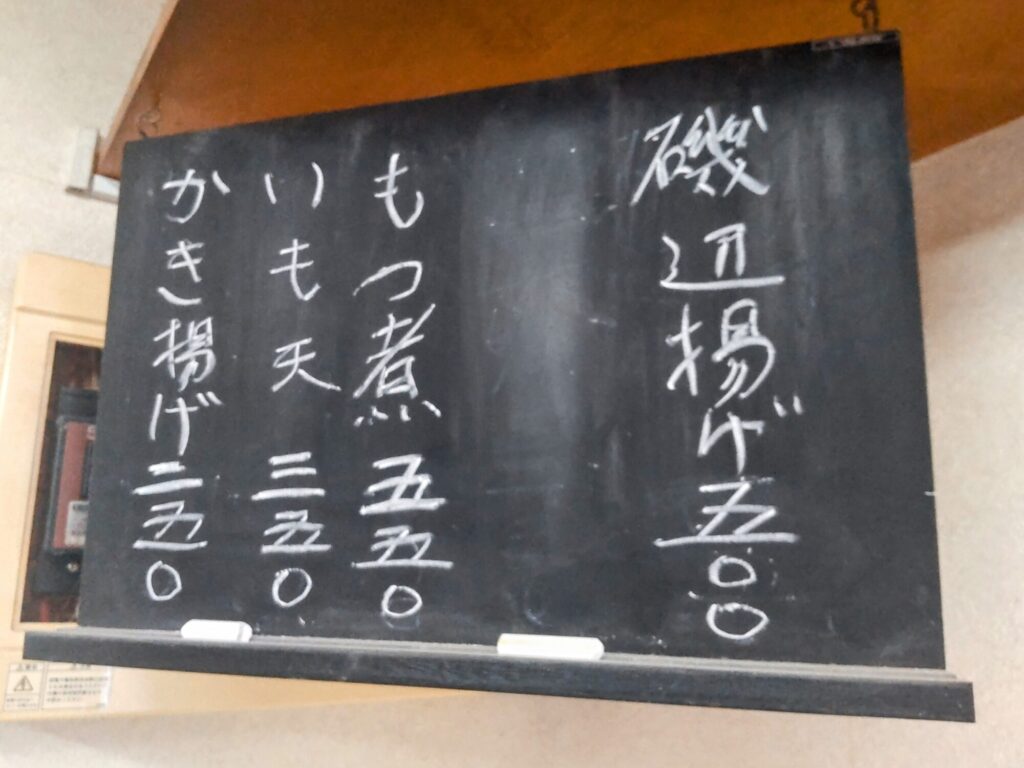 磯辺揚げ五〇〇
もつ煮五五〇
いも天三五〇
かき揚げ二五〇